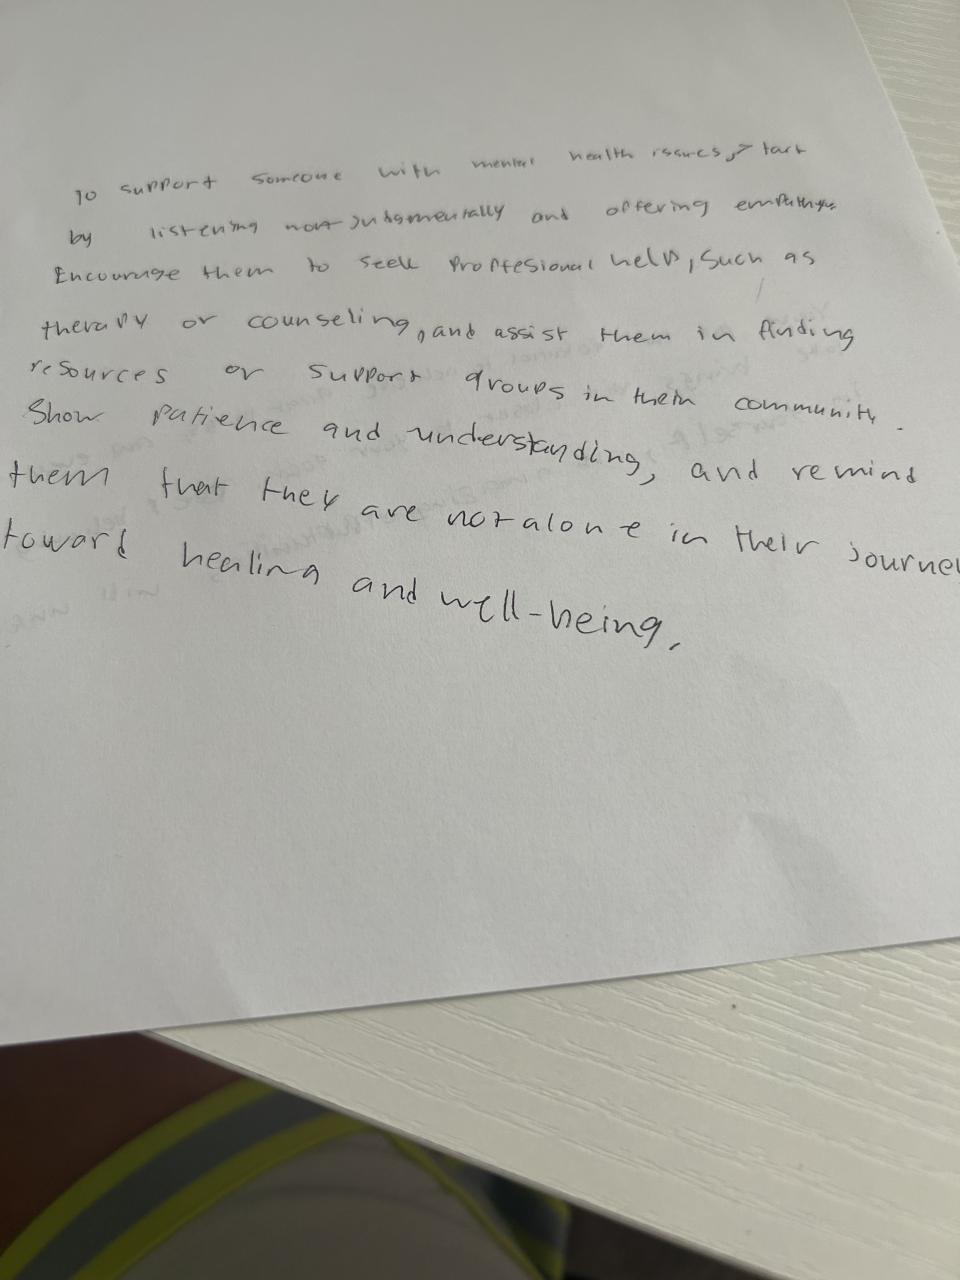 To support someone with mental health issues, start
by listening non-judgmentally and offering empathy.
Encourage them to seek Proffesional help, such as
therapy or counseling, and assist them in finding
resources or support groups in their community.
Show patience and understanding, and remind
them that they are not alone in their journey
toward healing and well-being.